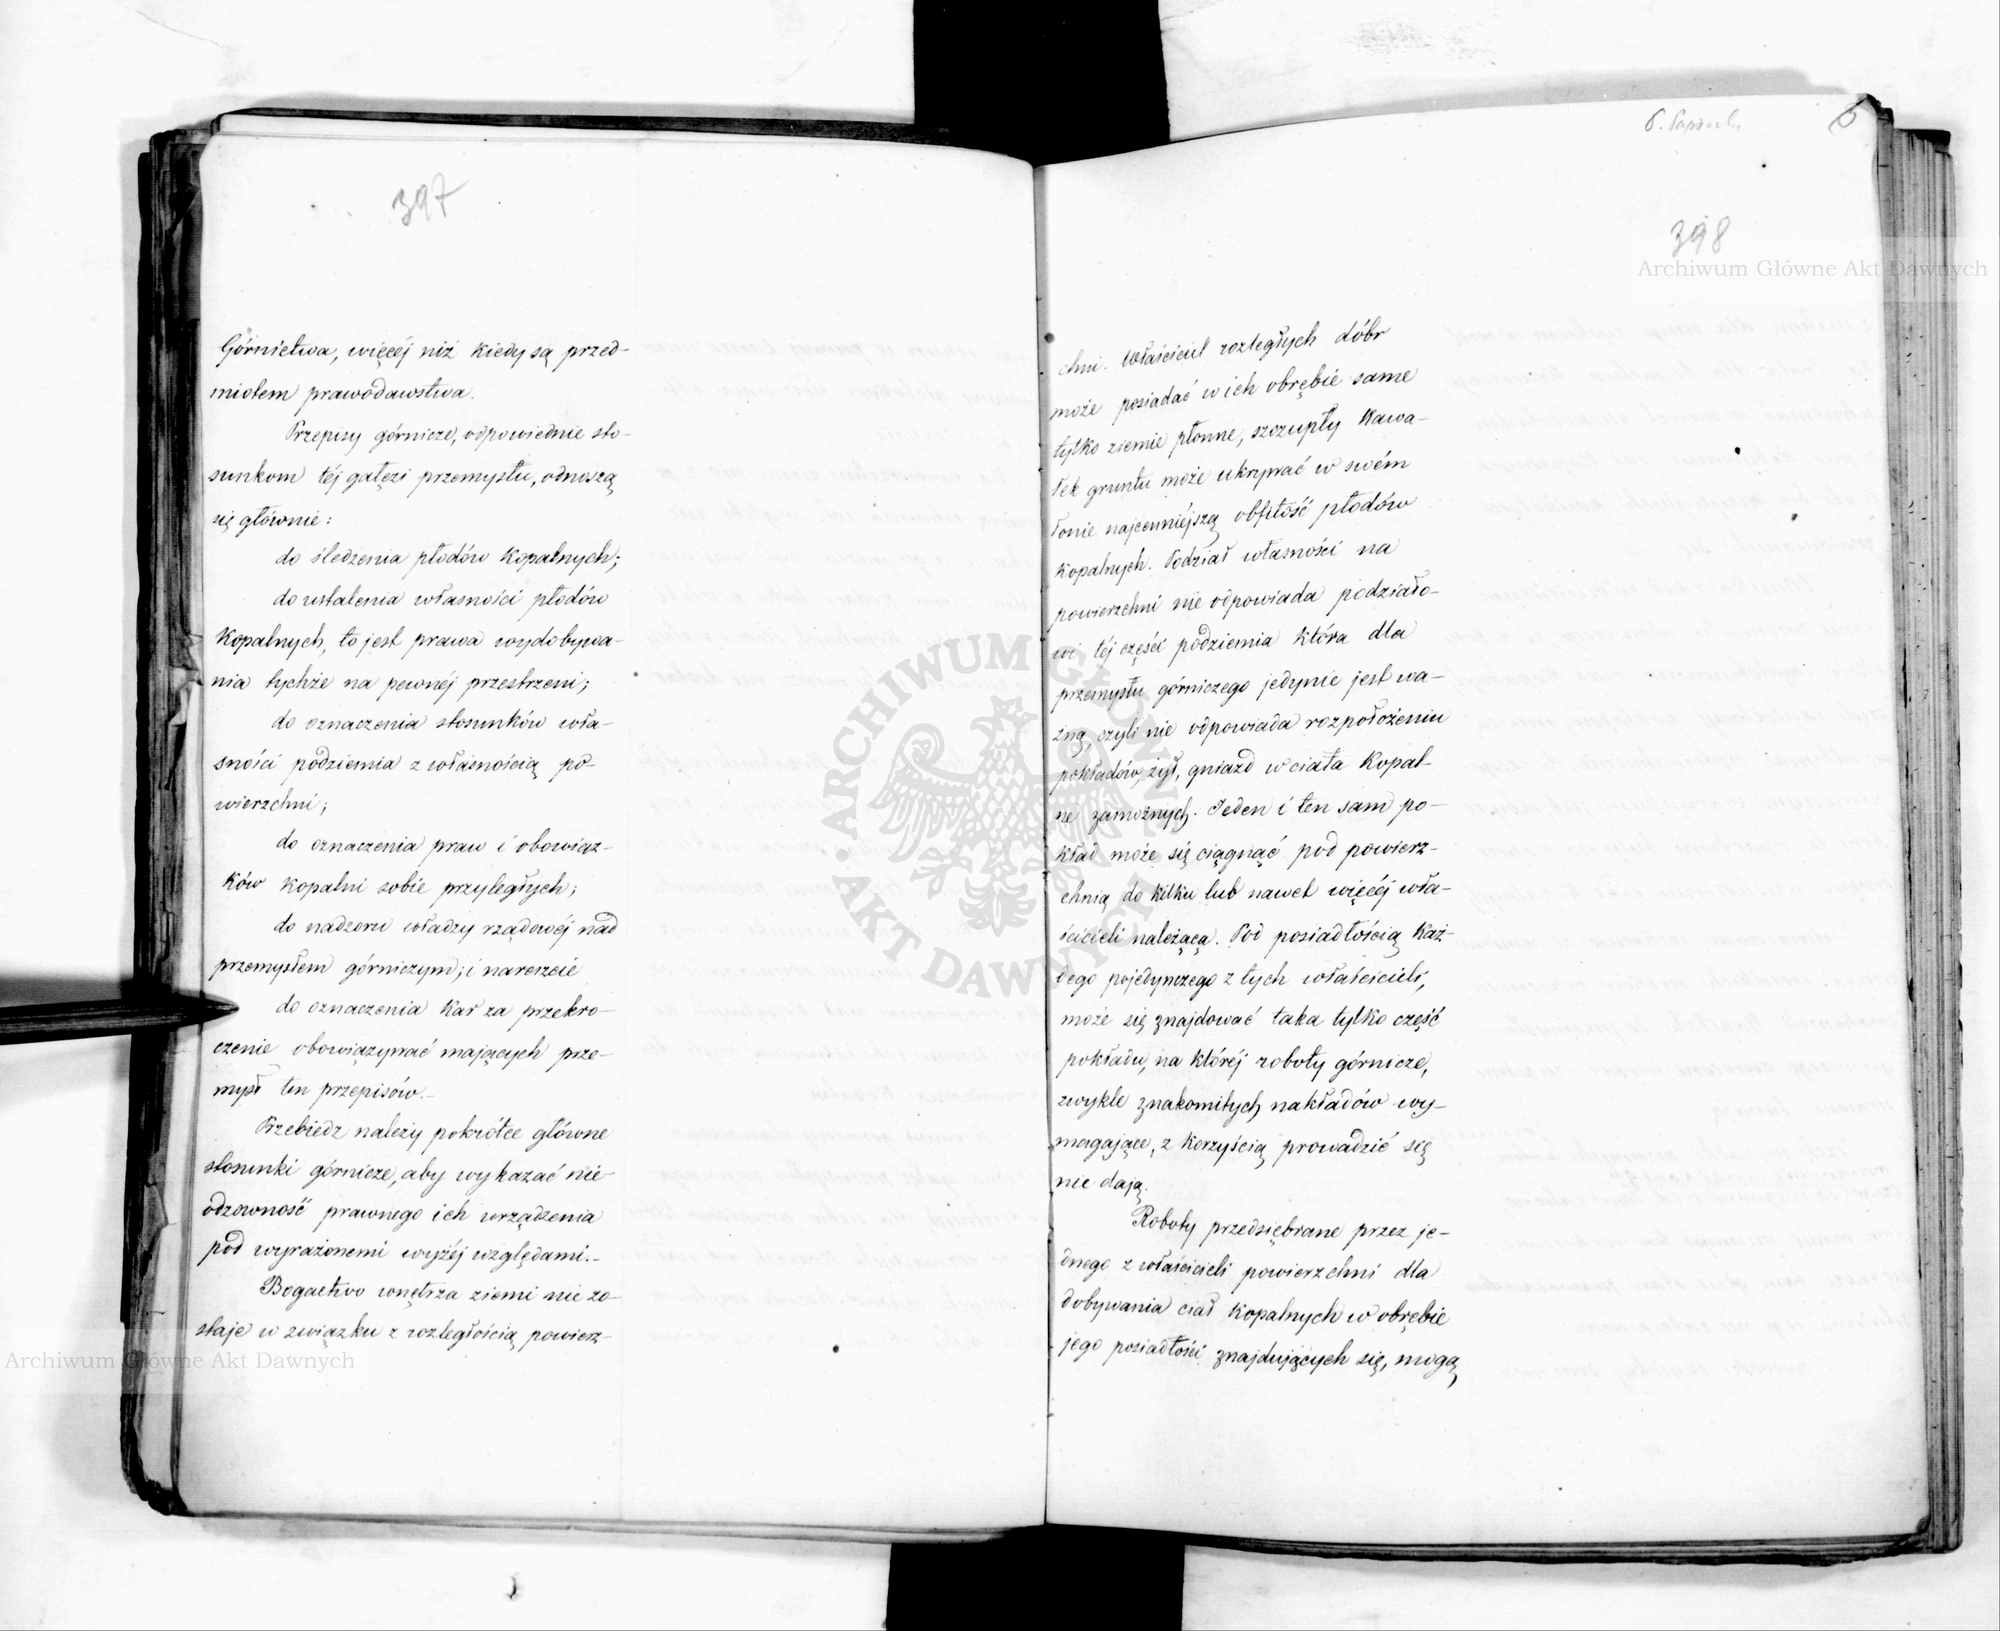 397
Górnictwa, więcéj niż kiedy są przed-
miotem prawodawstwa.
Przepisy górnicze, odpowiednie sto-
sunkom téj gałęzi przemysłu, odnoszą
się głównie:
do śledzenia płodów kopalnych;
do ustalenia własności płodów
kopalnych, to jest prawa wydobywa-
nia tychże na pewnéj przestrzeni;
do oznaczenia stosunków wła-
sności podziemia z własnością po-
wierzchni;
do oznaczenia praw i obowiąz-
ków kopalni sobie przyległych;
do nadzoru władzy rządowéj nad
przemysłem górniczym; i nareszcie
do oznaczenia kar za przekro-
czenie obowiązywać mających prze-
mysł ten przepisów.-
Przebiedz należy pokrótce główne
stosunki górnicze, aby wykazać nie-
odzowność prawnego ich urządzenia
pod wyrażonemi wyżéj względami.-
Bogactwo wnętrza ziemi nie zo-
staje w związku z rozległością powierz-
6.
398
chni. Właściciel rozległych dóbr
może posiadać w ich obrębie same
tylko ziemie płonne, szczupły kawa-
łek gruntu może ukrywać w swém
łonie najcenniéjszą obfitość płodów
kopalnych. Podział własności na
powierzchni nie odpowiada podziało-
wi téj części podziemia która dla
przemysłu górniczego jedynie jest wa-
żną, czyli nie odpowiada rozpołożeniu
pokładów, żył, gniazd w ciała kopal-
ne zamożnych. Jeden i ten sam po-
kład może się ciągnąć pod powierz-
chnią do kilku lub nawet więcéj wła-
ścicieli należącą. Pod posiadłością każ-
dego pojedynczego z tych właścicieli,
może się znajdować taka tylko część
pokładu, na któréj roboty górnicze,
zwykle znakomitych nakładów wy-
magające, z korzyścią prowadzić się
nie dają.
Roboty przedsiębrane przez je-
dnego z właścicieli powierzchni dla
dobywania ciał kopalnych w obrębie
jego posiadłości znajdujących się, mogą
Archiwum Główne Akt Dawnych
Archiwum Główne Akt Dawnych
ARCHIWUM GŁÓWNE AKT DAWNYCH